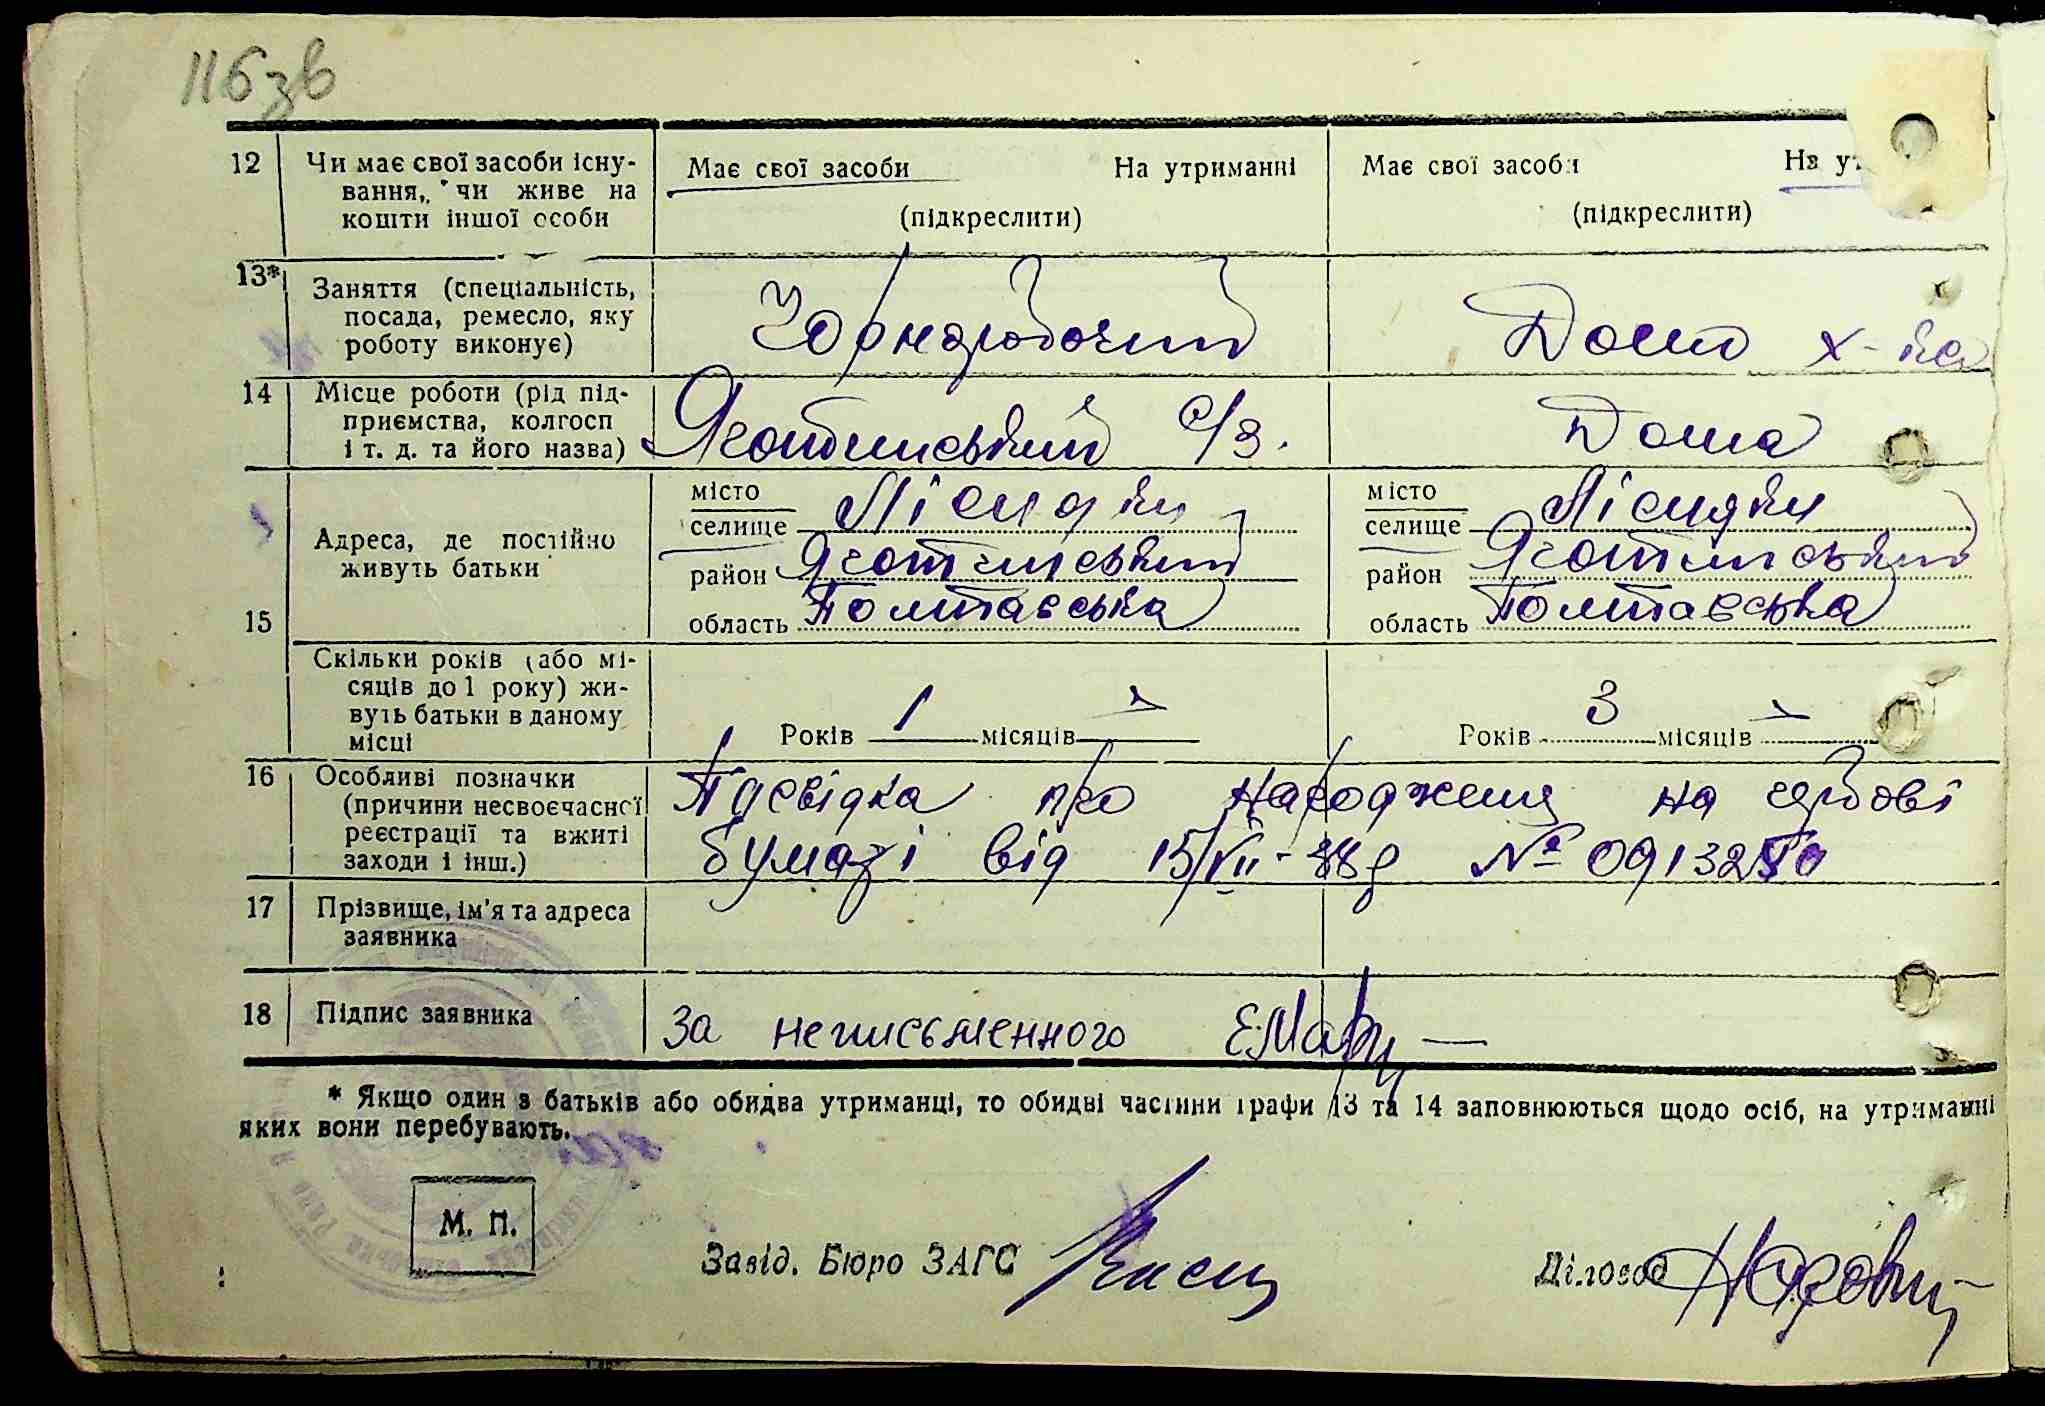 116 зв
12 Чи має свої засоби існу-
вання, чи живе на
кошти іншої особи
Має свої засоби На утриманні
(підкреслити)
Має свої засоби На ут
(підкреслити)
13* Заняття (спеціальність,
посада, ремесло, яку
роботу виконує)
Чорноробочий
Дом х-ка
14 Місце роботи (рід під-
приємства, колгосп
і т. д. та його назва)
Яготинський с/з.
Дома
15 Адреса, де постійно
живуть батьки
місто
селище Лісняки
район Яготинський
область Полтавська
місто
селище Лісняки
район Яготинський
область Полтавська
Скільки років (або мі-
сяців до 1 року) жи-
вуть батьки в даному
місці
Років 1 місяців
Років 3 місяців
16 Особливі позначки
(причини несвоєчасної
реєстрації та вжиті
заходи і інш.)
Посвідка про народження на гербові
бумазі від 15/VII-38р № 091325
17 Прізвище, ім'я та адреса
заявника
18 Підпис заявника
За неписьменного
* Якщо один з батьків або обидва утриманці, то обидві частини графи 13 та 14 заповнюються щодо осіб, на утриманні
яких вони перебувають.
М. П.
Завід. Бюро ЗАГС
Діловод